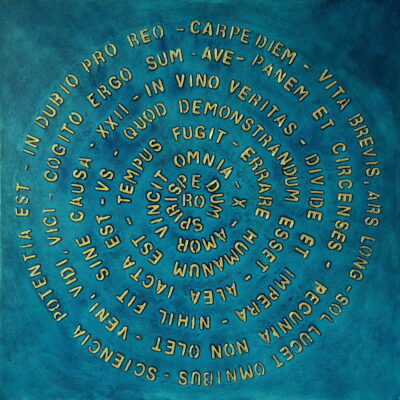 IN DUBIO PRO REO - CARPE DIEM - VITA BREVIS, ARS LONG - SOL LUCET OMNIBUS - SCIENCIA POTENTIA EST -
VENI, VIDI, VICI - COGITO ERGO SUM - AVE - PANEM ET CIRCENSES - PECUNIA NON OLET -
NIHIL FIT SINE CAUSA - XXII - IN VINO VERITAS - DIVIDE ET IMPERA -
ALEA IACTA EST - VS - QUOD DEMONSTRANDUM ESSET -
TEMPUS FUGIT - ERRARE HUMANUM EST -
AMOR VINCIT OMNIA - X -
DUM